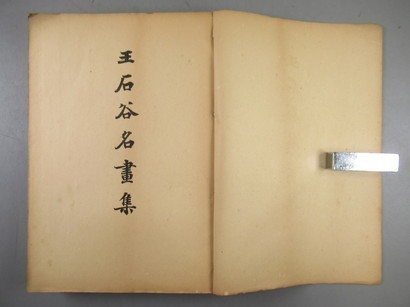 王石谷名畫集